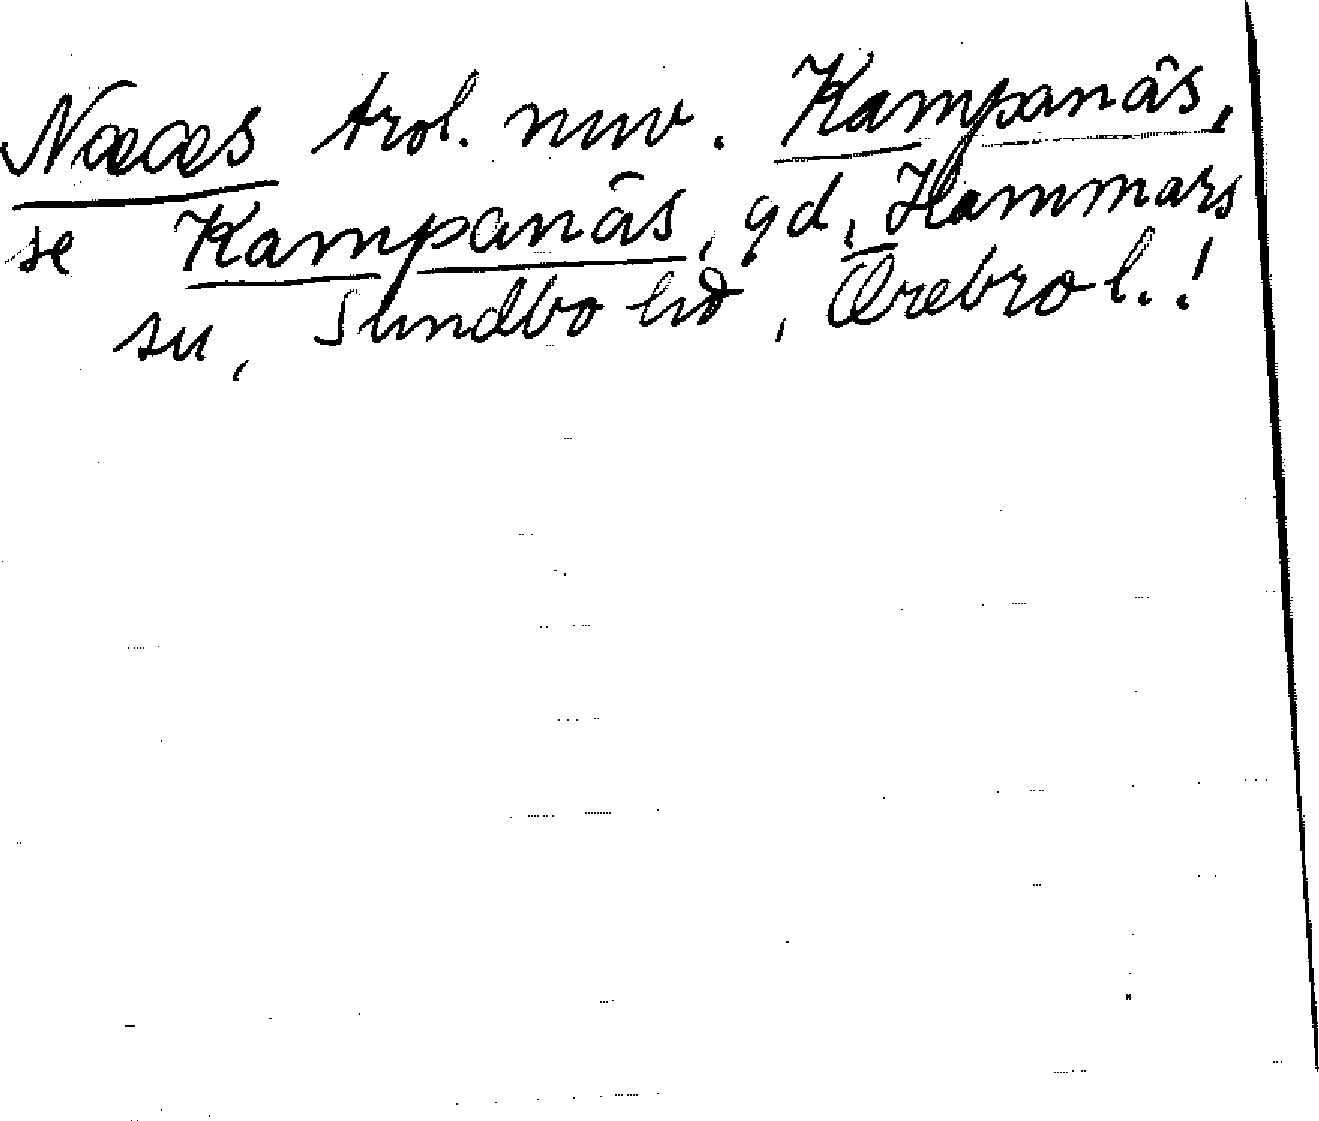 Næææs trol. nuv. Kampanäs,
se Kampanäs, gd, Hammars
sn, Sundbo hd, Örebro l.!